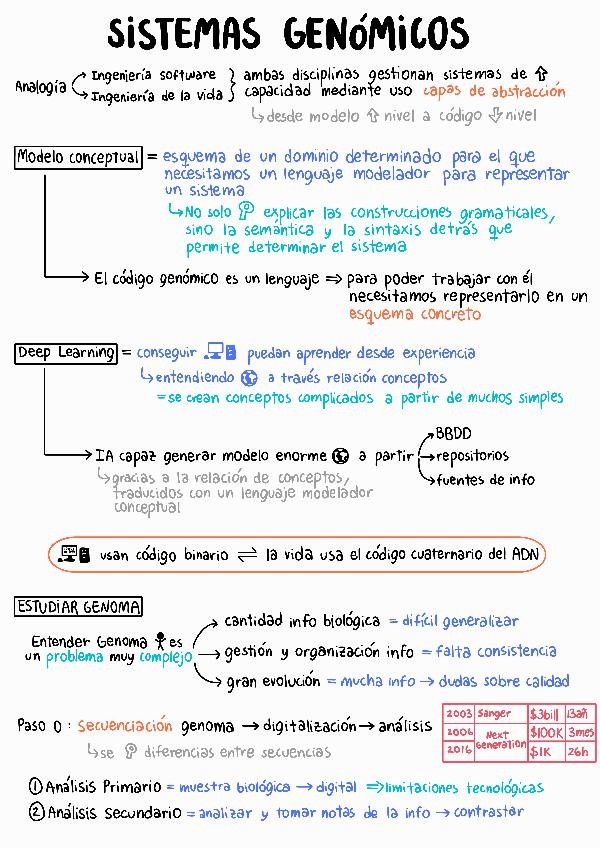 SISTEMAS GENÓMICOS
Analogía
Ingeniería software
Ingeniería de la vida
ambas disciplinas gestionan sistemas de ⇧
capacidad mediante uso capas de abstracción
↳desde modelo ⇧ nivel a código ⇩ nivel
Modelo conceptual = esquema de un dominio determinado para el que
necesitamos un lenguaje modelador para representar
un sistema
↳No solo explicar las construcciones gramaticales,
sino la semántica y la sintaxis detrás que
permite determinar el sistema
El código genómico es un lenguaje ⇒ para poder trabajar con él
necesitamos representarlo en un
esquema concreto
Deep Learning = conseguir puedan aprender desde experiencia
↳entendiendo a través relación conceptos
= se crean conceptos complicados a partir de muchos simples
IA capaz generar modelo enorme a partir
BBDD
repositorios
fuentes de info
↳gracias a la relación de conceptos,
traducidos con un lenguaje modelador
conceptual
usan código binario ⇌ la vida usa el código cuaternario del ADN
ESTUDIAR GENOMA
Entender Genoma es
un problema muy complejo
cantidad info biológica = difícil generalizar
gestión y organización info = falta consistencia
gran evolución = mucha info → dudas sobre calidad
Paso 0 : Secuenciación genoma → digitalización → análisis
↳se diferencias entre secuencias
2003 Sanger $3bill 13añ
2006 Next Generation $100K 3mes
2016 $1K 26h
① Análisis Primario = muestra biológica → digital ⇒ limitaciones tecnológicas
② Análisis Secundario = analizar y tomar notas de la info → contrastar